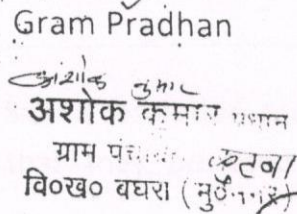 Gram Pradhan
अशोक कुमार
अशोक कुमार प्रधान
ग्राम कटवा
वि०ख० बघरा